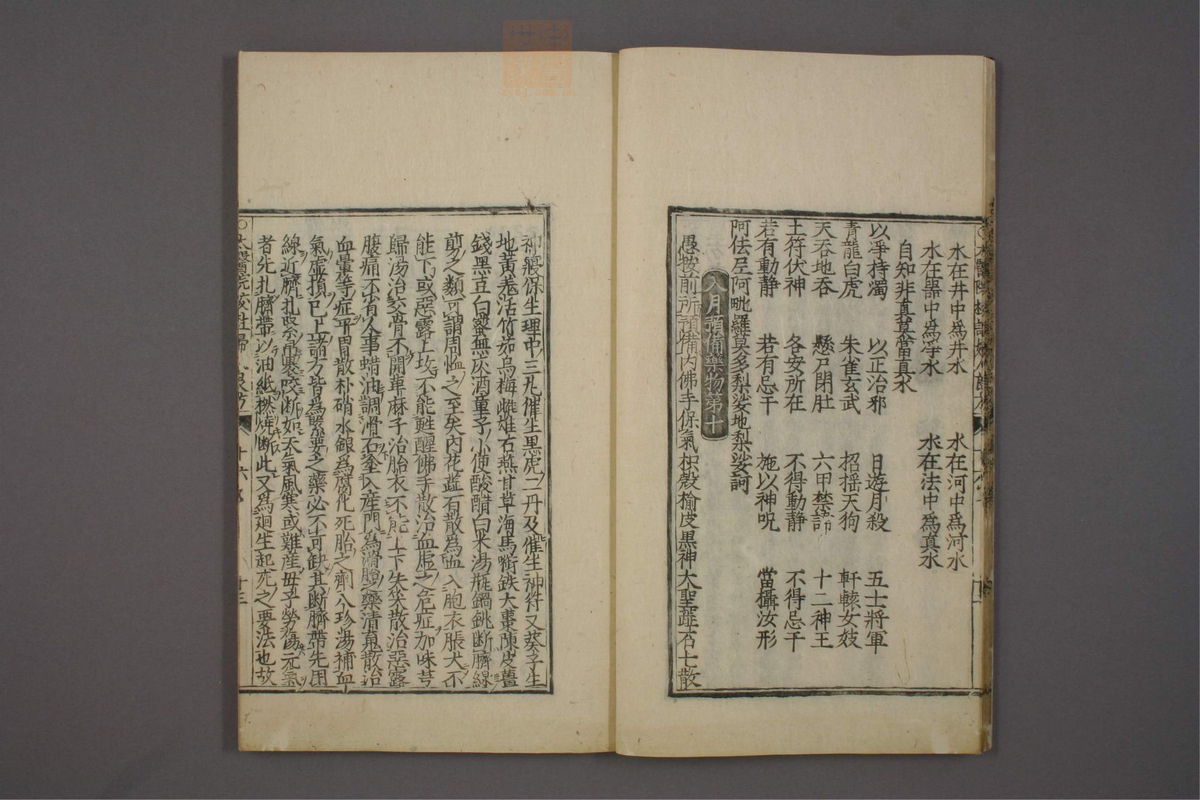 水在井中為井水　水在河中為河水
水在器中為淨水　水在法中為真水
自知非真莫當真水
以淨持濁　以正治邪　日遊月殺　五士將軍
青龍白虎　朱雀玄武　招搖天狗　軒轅女妓
天吞地吞　懸尸閉肚　六甲禁諱　十二神王
土符伏神　各安所在　不得動静　不得忌干
若有動静　若有忌干　施以神呪　當攝汝形
阿佉尼阿毗羅莫多梨娑地梨娑訶
八月預備藥物第十
愚按前所預備内佛手保氣枳殼榆皮黑神大聖蘿石七散
神寢保生理中三丸催生黑虎二丹及催生神符又葵子生
地黄卷活竹茹烏梅雌雄石燕甘草海馬嚼鉄大棗陳皮薑
錢黑豆白蜜無灰酒童子小便酸醋白米湯瓶鍋銚断臍線
剪之類可謂周恤之至矣内花蕊石散為血入胞衣脹大不
能下或惡露上攻不能甦醒佛手散治血虛之危症加味芎
歸湯治交骨不開萆麻子治胎衣不能下失笑散治惡露
腹痛不省人事蜡油調滑石塗入産門為滑胎之藥清魂散治
血暈等症平胃散朴硝水銀為腐化死胎之劑八珍湯補血
氣虛損已上諸方皆為緊要之藥必不可缺其断臍帶先用
線近臍扎緊帛裹咬断如天氣風寒或難産毋子勞傷元氣
者先扎臍帶以油紙撚燒断此又為廻生起死之要法也故
十六
十三